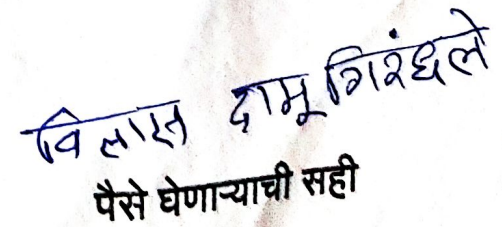 विलास दामू गिरंधले
पैसे घेणाऱ्याची सही